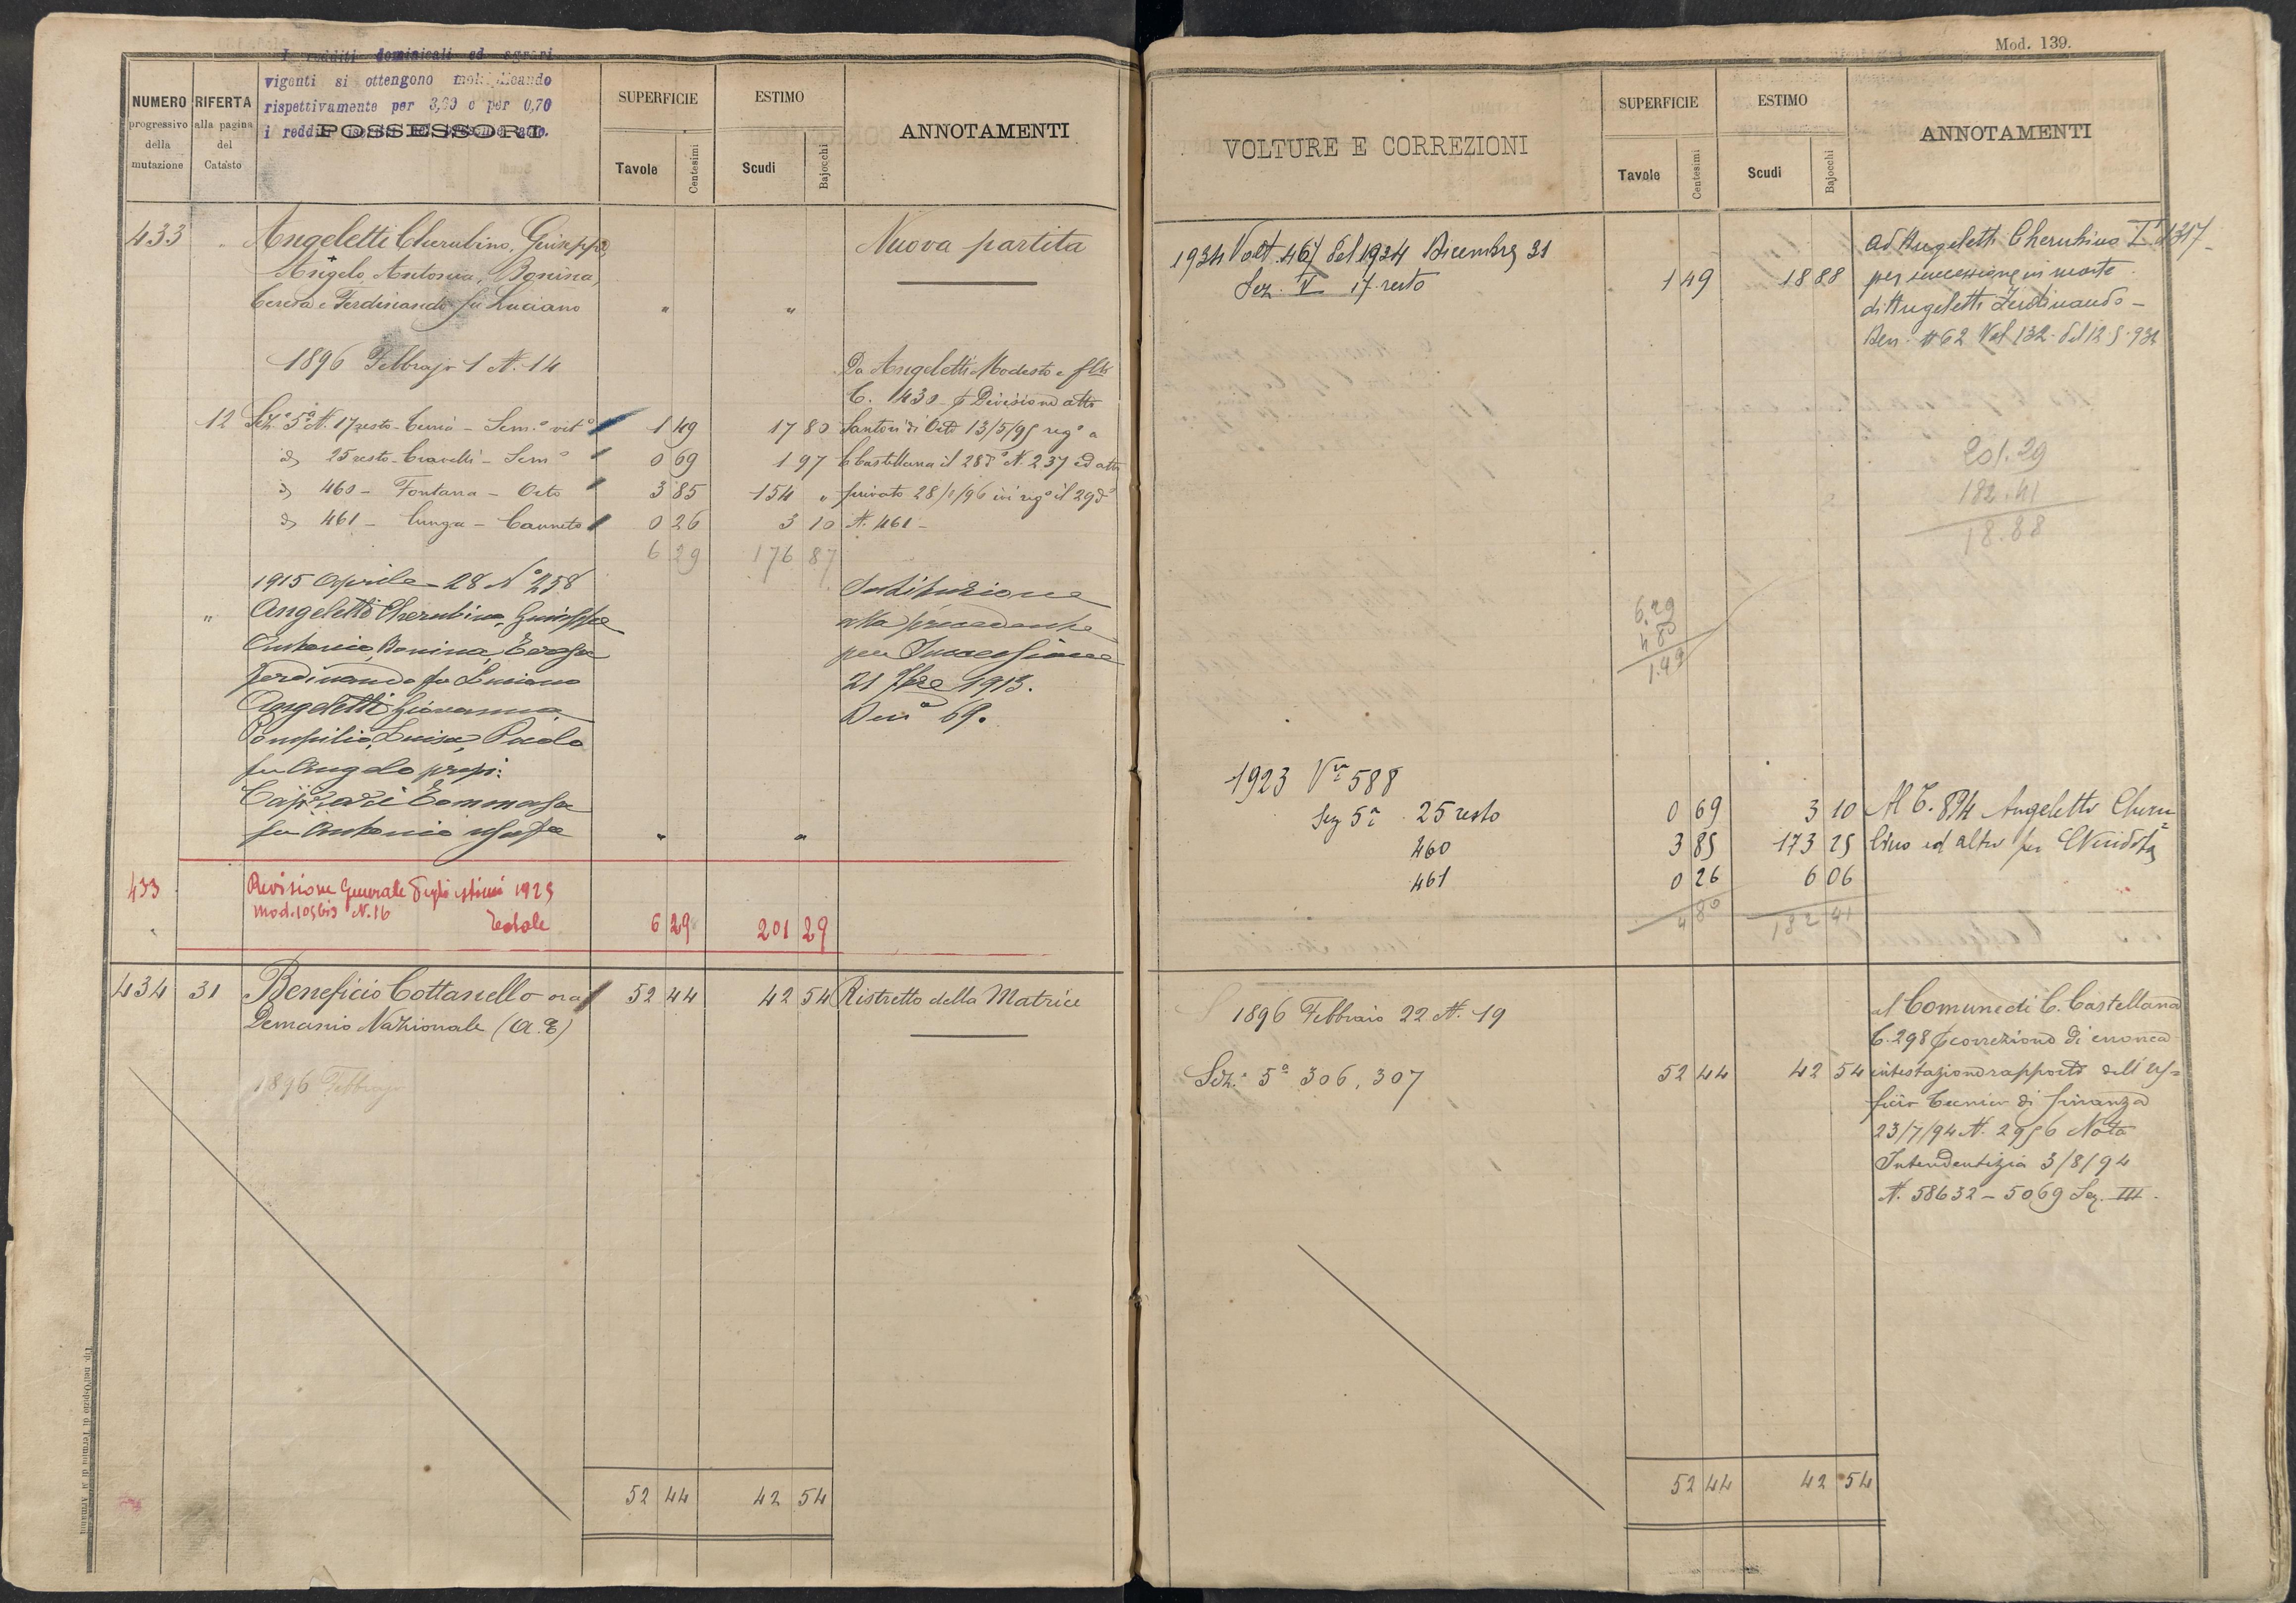 I redditi dominicali ed agrari
vigenti si ottengono moltiplicando
rispettivamente per 3,60 e per 0,70
i redditi
NUMERO progressivo della mutazione
RIFERTA alla pagina del Catasto
POSSESSORI
SUPERFICIE
Tavole Centesimi
ESTIMO
Scudi Bajocchi
ANNOTAMENTI
433 Angeletti Cherubino, Giuseppe, Nuova partita
Angelo, Antonia, Bonina,
Teresa e Ferdinando fu Luciano " "
1896 Febbrajo 1 N. 14 Da Angeletti Modesto e flli
C. 1430 Divisione atto
12 Sez.e 5a N. 17 resto - Cerrio - Sem.o vit.o 1 49 17 80 Santori di Orte 13/5/95 reg.o a
d 25 resto - Cravelli - Sem.o 0 69 1 97 C Castellana il 28 do N. 237 ed atto
d 460 - Fontana - Orto 3 85 154 " privato 28/1/96 ivi reg.o il 29 do
d 461 - Lunga - Canneto 0 26 3 10 N. 461 -
6 29 176 87
1915 Aprile 28 No 258 Sostituzione
" Angeletti Cherubino, Giuseppe alla precedente
Antonia, Bonina, Teresa per Successione
Ferdinando fu Luciano 21 7bre 1913.
Angeletti Giovanna Den.a 69.
Pompilio, Luisa, Paolo
fu Angelo propi:
Caprari Tommasa
fu Antonio usufta " "
433 Revisione Generale degli estimi 1923
Mod. 105bis N. 16
Totale 6 29 201 29
434 31 Beneficio Cottanello ora 52 44 42 54 Ristretto della Matrice
Demanio Nazionale (A.E)
1896 Febbrajo
52 44 42 54
Mod. 139.
VOLTURE E CORREZIONI
SUPERFICIE
Tavole Centesimi
ESTIMO
Scudi Bajocchi
ANNOTAMENTI
1934 Volt. 467 del 1934 Dicembre 31 ad Angeletti Cherubino T. 1317
Sez. V 17 resto 1 49 18 88 per successione in morte
di Angeletti Ferdinando -
Den. 62 Vol 132 del 12.5.932
201.29
182.41
18.88
6.29
4.80
1.49
1923 Vra 588
Sez 5a 25 resto 0 69 3 10 Al C. 894 Angeletti Cheru=
460 3 85 173 25 bino ed altri per Vendita
461 0 26 6 06
4 80 182 41
1896 Febbraio 22 N. 19 al Comune di C. Castellana
C. 298 correzione di erronea
Sez.e 5a 306, 307 52 44 42 54 intestazione rapporto dell'Uf=
ficio Tecnico di finanza
23/7/94 N. 2956 Nota
Intendentizia 3/8/94
N. 58632 - 5069 Sez. III.
52 44 42 54